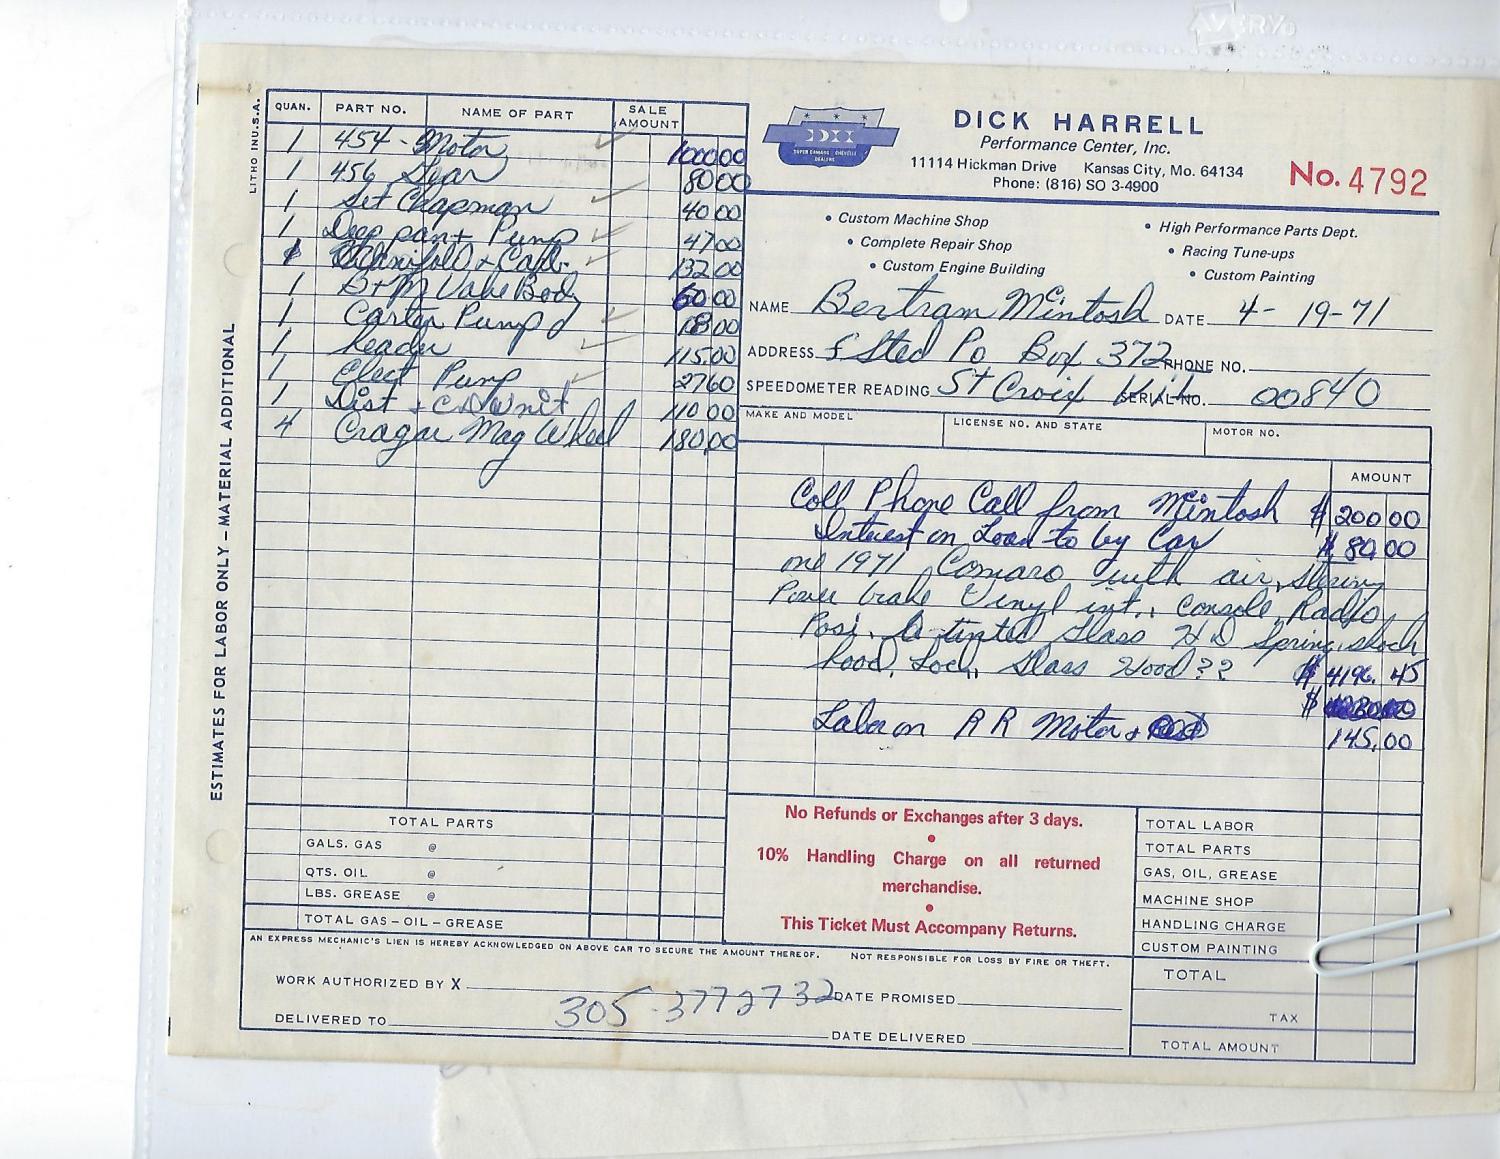 AVERY
LITHO IN U.S.A.
ESTIMATES FOR LABOR ONLY – MATERIAL ADDITIONAL
QUAN. PART NO. NAME OF PART SALE AMOUNT
1 454 - Motor 1000 00
1 456 Gear 80 00
1 Set Chapman 40 00
1 Deep pan + Pump 47 00
Manifold + Carb. 132 00
1 B + M Valve Body 60 00
1 Carter Pump 18 00
1 header 115.00
1 Elect Pump 27 60
1 Dist + C D Unit 110 00
4 Cragar Mag Wheel 180.00
TOTAL PARTS
GALS. GAS @
QTS. OIL @
LBS. GREASE @
TOTAL GAS – OIL – GREASE
SUPER CAMARO - CHEVELLE
DEALERS
DICK HARRELL
Performance Center, Inc.
11114 Hickman Drive Kansas City, Mo. 64134
Phone: (816) SO 3-4900
No. 4792
• Custom Machine Shop
• Complete Repair Shop
• Custom Engine Building
• High Performance Parts Dept.
• Racing Tune-ups
• Custom Painting
NAME Bertram McIntosh DATE 4 - 19 - 71
ADDRESS F Sted Po Box 372 PHONE NO.
SPEEDOMETER READING St Croix SERIAL NO. 00840
MAKE AND MODEL LICENSE NO. AND STATE MOTOR NO.
AMOUNT
Coll Phone Call from McIntosh $ 200 00
Interest on Loan to by Car $ 80 00
one 1971 Camaro with air, Stering
Power brake Vinyl int., Console, Radio,
Posi. tinted Glass H D Spring, shock
hood, Lock, Glass Hood ?? $ 4196. 45
$
Labor on R R Motor + 145.00
No Refunds or Exchanges after 3 days.
•
10% Handling Charge on all returned
merchandise.
•
This Ticket Must Accompany Returns.
TOTAL LABOR
TOTAL PARTS
GAS, OIL, GREASE
MACHINE SHOP
HANDLING CHARGE
CUSTOM PAINTING
TOTAL
TAX
TOTAL AMOUNT
AN EXPRESS MECHANIC'S LIEN IS HEREBY ACKNOWLEDGED ON ABOVE CAR TO SECURE THE AMOUNT THEREOF. NOT RESPONSIBLE FOR LOSS BY FIRE OR THEFT.
WORK AUTHORIZED BY X DATE PROMISED
305-3772732
DELIVERED TO DATE DELIVERED